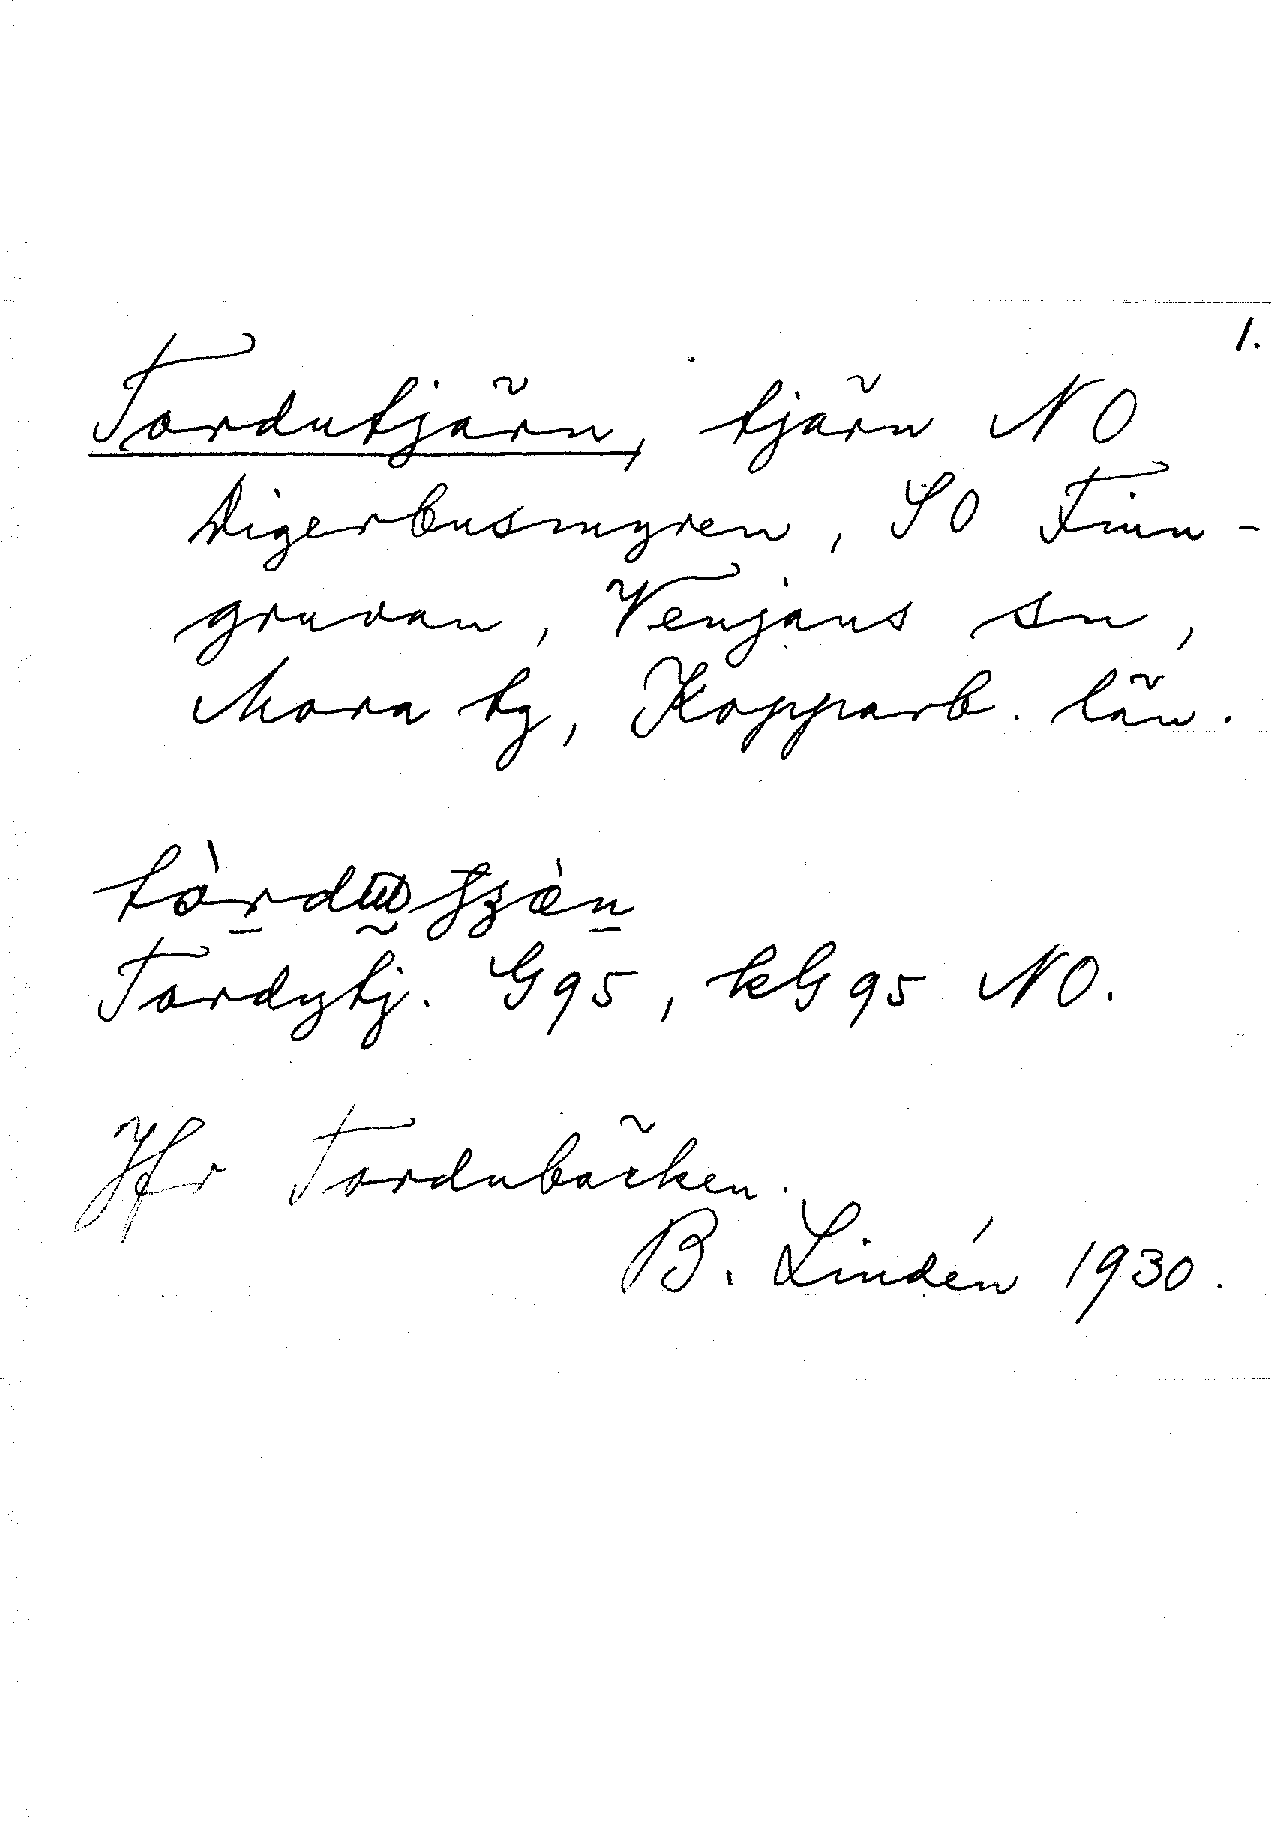 1.
Tordutjärn, tjärn NO
Digerbusmyren, SO Finn-
gruvan, Venjans sn,
Mora tg, Kopparb. län.
Tordytj. G95, kG95 NO.
Jfr Tordubäcken.
B. Lindén 1930.